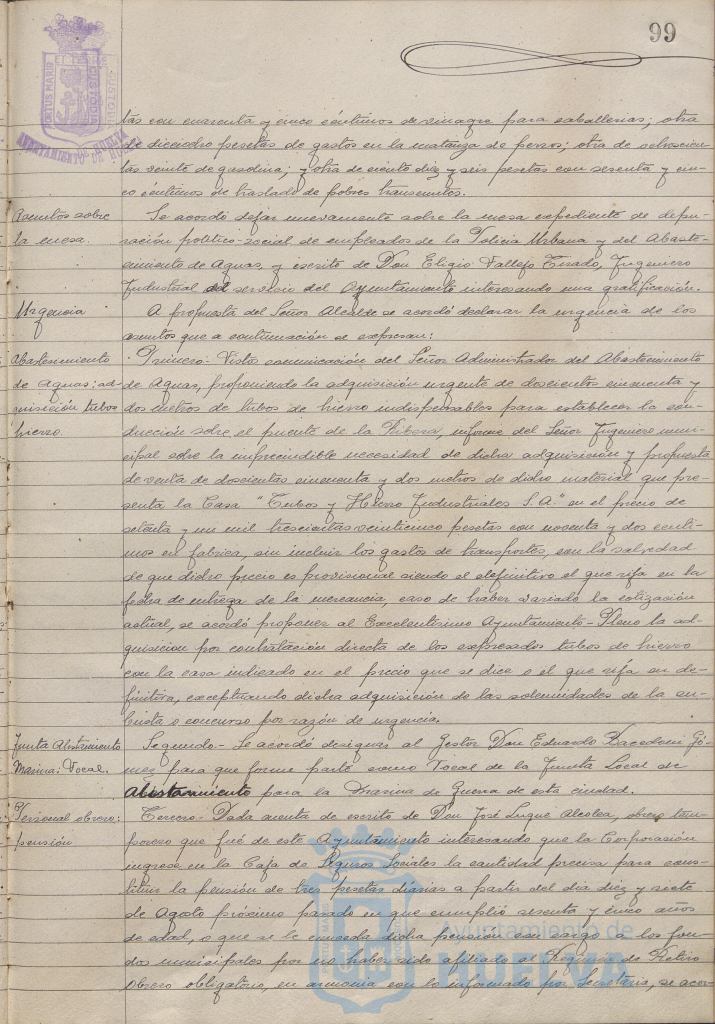 99
PORTUS MARIS
ET TERRÆ CUSTODIA
AYUNTAMIENTO de HUELVA
tas con cuarenta y cinco céntimos de vinagre para caballerias; otra
de dieciocho pesetas de gastos en la matanza de perros; otra de
tas veinte de gasolina; y otra de ciento diez y seis pesetas con sesenta y cin-
co céntimos de traslado de pobres transeuntes.
Asuntos sobre
la mesa.
Se acordó dejar nuevamente sobre la mesa expediente de depu-
ración político-social de empleados de la Policía Urbana y del Abaste-
cimiento de Aguas, y escrito de Don Eligio Vallejo Tirado, Ingeniero
Industrial al servicio del Ayuntamiento interesando una gratificación.
Urgencia
A propuesta del Señor Alcalde se acordó declarar la urgencia de los
asuntos que a continuación se expresan:
Abastecimiento
de Aguas: ad-
quisición tubos
hierro.
Primero- Vista comunicación del Señor Administrador del Abastecimiento
de Aguas, proponiendo la adquisición urgente de doscientos cincuenta y
dos metros de tubos de hierro indispensables para establecer la con-
ducción sobre el puente de la Ribera, informe del Señor Ingeniero muni-
cipal sobre la imprescindible necesidad de dicha adquisición y propuesta
de venta de doscientos cincuenta y dos metros de dicho material que pre-
senta la Casa "Tubos y Hierro Industriales S.A." en el precio de
setenta y un mil trescientas veinticinco pesetas con noventa y dos cénti-
mos en fábrica, sin incluir los gastos de transportes, con la salvedad
de que dicho precio es provisional siendo el definitivo el que rija en la
fecha de entrega de la mercancia, caso de haber variado la cotización
actual, se acordó proponer al Excelentísimo Ayuntamiento-Pleno la ad-
quisición por contratación directa de los expresados tubos de hierro
con la casa indicada en el precio que se dice o el que rija en de-
finitiva, exceptuando dicha adquisición de las solemnidades de la su-
basta o concurso por razón de urgencia.
Junta Alistamiento
Marina: Vocal.
Segundo- Se acordó designar al Gestor Don Eduardo Gó-
mez para que forme parte como Vocal de la Junta Local de
Alistamiento para la Marina de Guerra de esta ciudad.
Personal obrero:
pensión
Tercero- Dada cuenta de escrito de Don José Luque Alcolea, obrero tem-
porero que fué de este Ayuntamiento interesando que la Corporación
ingrese en la Caja de Seguros Sociales la cantidad precisa para cons-
tituir la pensión de tres pesetas diarias a partir del día diez y siete
de Agosto próximo pasado en que cumplió sesenta y cinco años
de edad, o que se le conceda dicha pensión con cargo a los fon-
dos municipales por no haber sido afiliado al Régimen de Retiro
Obrero obligatorio, en armonia con lo informado por Secretaria, se acor-
Ayuntamiento de
HUELVA